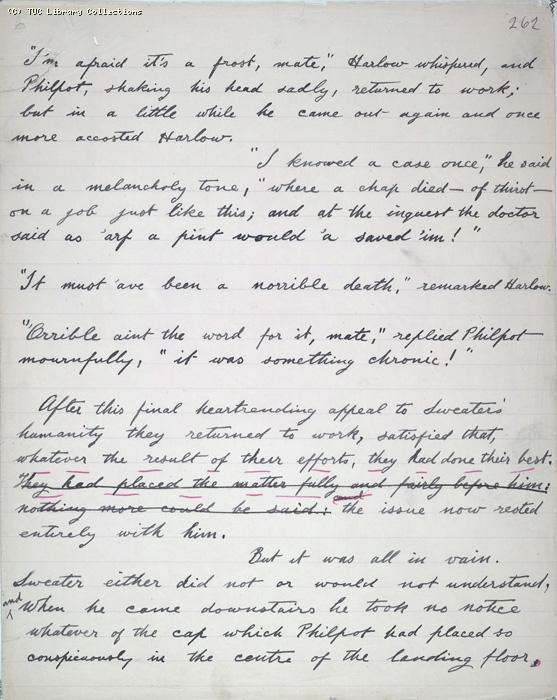 (C) TUC Library Collections
262
"I'm afraid it's a frost, mate," Harlow whispered, and
Philpot, shaking his head sadly, returned to work;
but in a little while he came out again and once
more accosted Harlow.
"I knowed a case once," he said
in a melancholy tone, "where a chap died – of thirst –
on a job just like this; and at the inquest the doctor
said as 'arf a pint would 'a saved 'im!"
"It must 'ave been a norrible death," remarked Harlow.
"'Orrible aint the word for it, mate," replied Philpot
mournfully, "it was something chronic!"
After this final heartrending appeal to Sweater's
humanity they returned to work, satisfied that,
whatever the result of their efforts, they had done their best.
They had placed the matter fully and fairly before him:
nothing more could be said: and the issue now rested
entirely with him.
But it was all in vain.
Sweater either did not or would not understand,
and When he came downstairs he took no notice
whatever of the cap which Philpot had placed so
conspicuously in the centre of the landing floor.